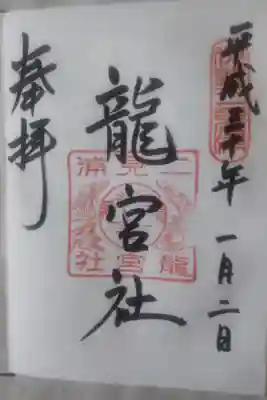 平成三十年一月二日
龍宮社
奉拝
二見浦
龍宮社